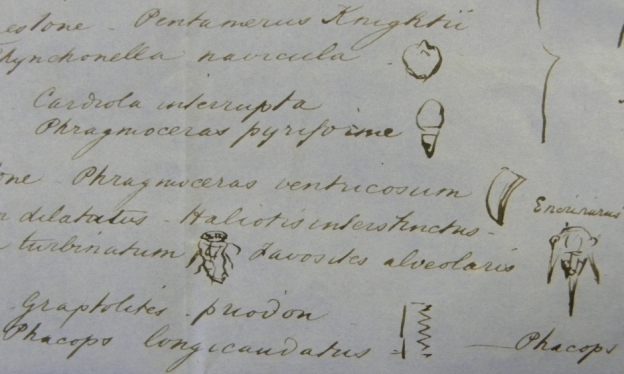 estone - Pentamerus Knightii
hynchonella navicula
Cardiola interrupta
Phragmoceras pyriforme
one - Phragmoceras ventricosum
Encrinurus
n dilatatus - Haliotis interstinctus -
turbinatum Favosites alveolaris
- Graptolites - priodon
Phacops longicaudatus - — Phacops